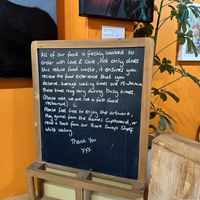 All of our food is freshly cooked to
order with love & care, Not only does
this reduce food waste, it ensures you
receive the food experience that you
deserve. Average waiting times are 15
these times may vary during busy times.
(Please note, we are not a fast food
restaurant)
Please feel free to enjoy the artwork,
Play games from the Games Cupboard, or
read a book from our Book Swap Shelf
whilst waiting
Thank You
xxx